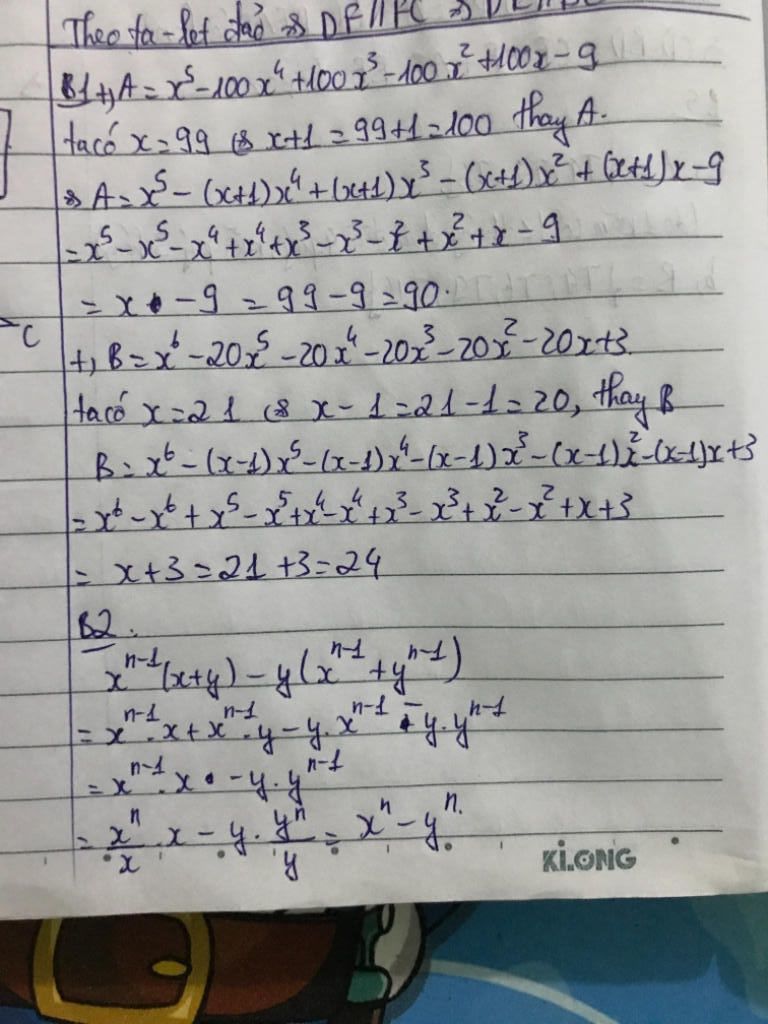 Theo ta-let đảo ⇒ DF // FC ⇒
B1 +, A = x⁵ - 100x⁴ + 100x³ - 100x² + 100x - 9
ta có x = 99 ⇔ x+1 = 99+1 = 100 thay A.
⇒ A = x⁵ - (x+1)x⁴ + (x+1)x³ - (x+1)x² + (x+1)x - 9
= x⁵ - x⁵ - x⁴ + x⁴ + x³ - x³ - x² + x² + x - 9
= x - 9 = 99 - 9 = 90.
C
+, B = x⁶ - 20x⁵ - 20x⁴ - 20x³ - 20x² - 20x + 3.
ta có x = 21 ⇔ x - 1 = 21 - 1 = 20, thay B
B = x⁶ - (x-1)x⁵ - (x-1)x⁴ - (x-1)x³ - (x-1)x² - (x-1)x + 3
= x⁶ - x⁶ + x⁵ - x⁵ + x⁴ - x⁴ + x³ - x³ + x² - x² + x + 3
= x + 3 = 21 + 3 = 24
B2.
xⁿ⁻¹(x+y) - y(xⁿ⁻¹ + yⁿ⁻¹)
= xⁿ⁻¹.x + xⁿ⁻¹.y - y.xⁿ⁻¹ - y.yⁿ⁻¹
= xⁿ⁻¹.x - y.yⁿ⁻¹
= xⁿ/x . x - y . yⁿ/y = xⁿ - yⁿ.
KLONG